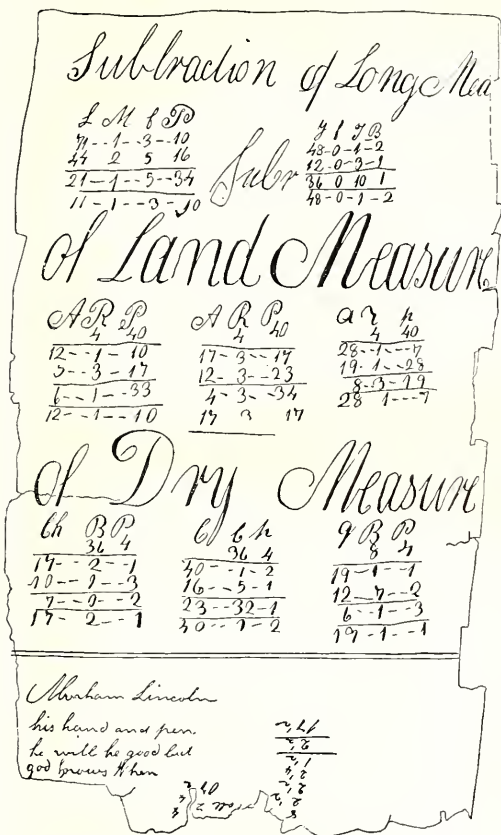 Subtraction of Long Mea
L M f P
71--1--3--10
44 2 5 16
21--1--5--34
11--1--3--10
Subr
Y f J B
48-0-1-2
12-0-3-1
36 0 10 1
48-0-1-2
of Land Measure
A R P
4 40
12--1-10
5--3-17
6--1--33
12--1--10
A R P
4 40
17-3--17
12-3--23
4-3--34
17 3 17
a r p
4 40
28-1--7
19-1--28
8-3-19
28 1--7
of Dry Measure
Ch B P
36 4
17--2--1
10--1--3
7--0--2
17-2--1
C b p
36 4
40--1-2
16--5-1
23--32-1
40--1-2
q B P
8 4
19-1--1
12-7--2
6--1--3
19-1--1
Abraham Lincoln
his hand and pen.
he will be good but
god knows When